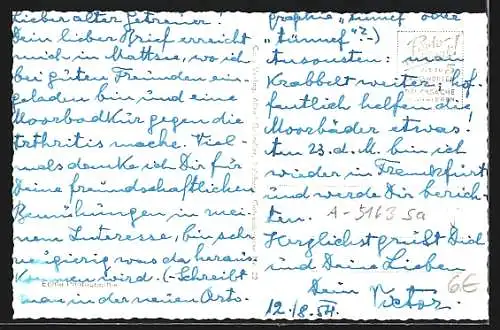 Lieber alter Getreuer!
Dein lieber Brief erreicht
mich in Mattsee, wo ich
bei guten Freunden ein-
geladen bin und eine
Moorbadkur gegen die
Arthritis mache. Viel-
mals danke ich Dir für
Deine freundschaftlichen
Bemühungen in mei-
nem Interesse, bin sehr
neugierig was da heraus-
kommen wird. (-Schreibt
man in der neuen Orto-
graphie "Tunnef" oder
"Tünnef"? -)
Ansonsten: man
Krabbelt weiter, hof-
fentlich helfen die
Moorbäder etwas.
Am 23. d. M. bin ich
wieder in Frankfurt
und werde Dir berich-
ten. A-5163 Sa
Herzlichst grüßt Dich
und Deine Lieben
Dein Victor
12./8. 54.
6€